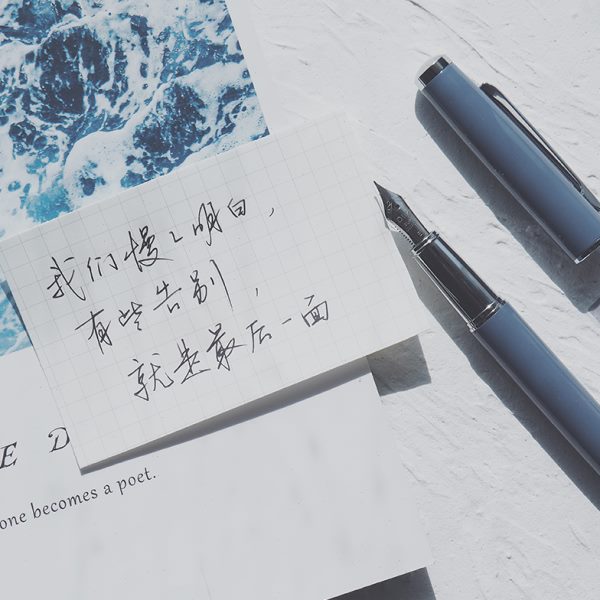 我们慢々明白，
有些告别，
就是最后一面
E D
one becomes a poet.